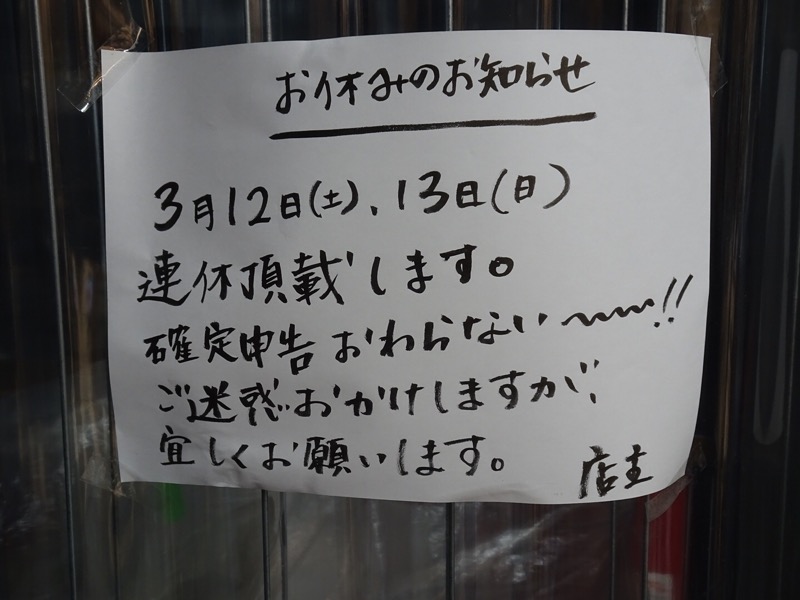 お休みのお知らせ
3月12日(土)、13日(日)
連休頂載します。
確定申告おわらない〜〜〜!!
ご迷惑おかけしますが、
宜しくお願いします。
店主